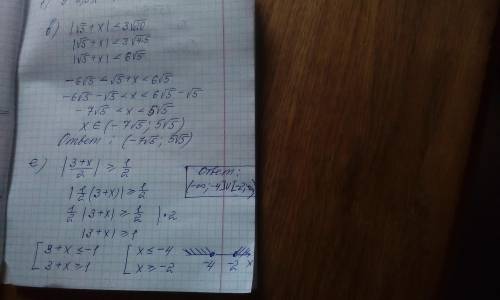 в) |√5+x| < 3√20
|√5+x| < 3√4·5
|√5+x| < 6√5
-6√5 < √5+x < 6√5
-6√5-√5 < x < 6√5-√5
-7√5 < x < 5√5
x ∈ (-7√5; 5√5)
Ответ: (-7√5; 5√5)
е) |3+x/2| ≥ 1/2
|1/2(3+x)| ≥ 1/2
1/2|3+x| ≥ 1/2 | ·2
|3+x| ≥ 1
[3+x ≤ -1
3+x ≥ 1
[x ≤ -4
x ≥ -2
-4 -2 x
Ответ:
(-∞; -4]∪[-2;